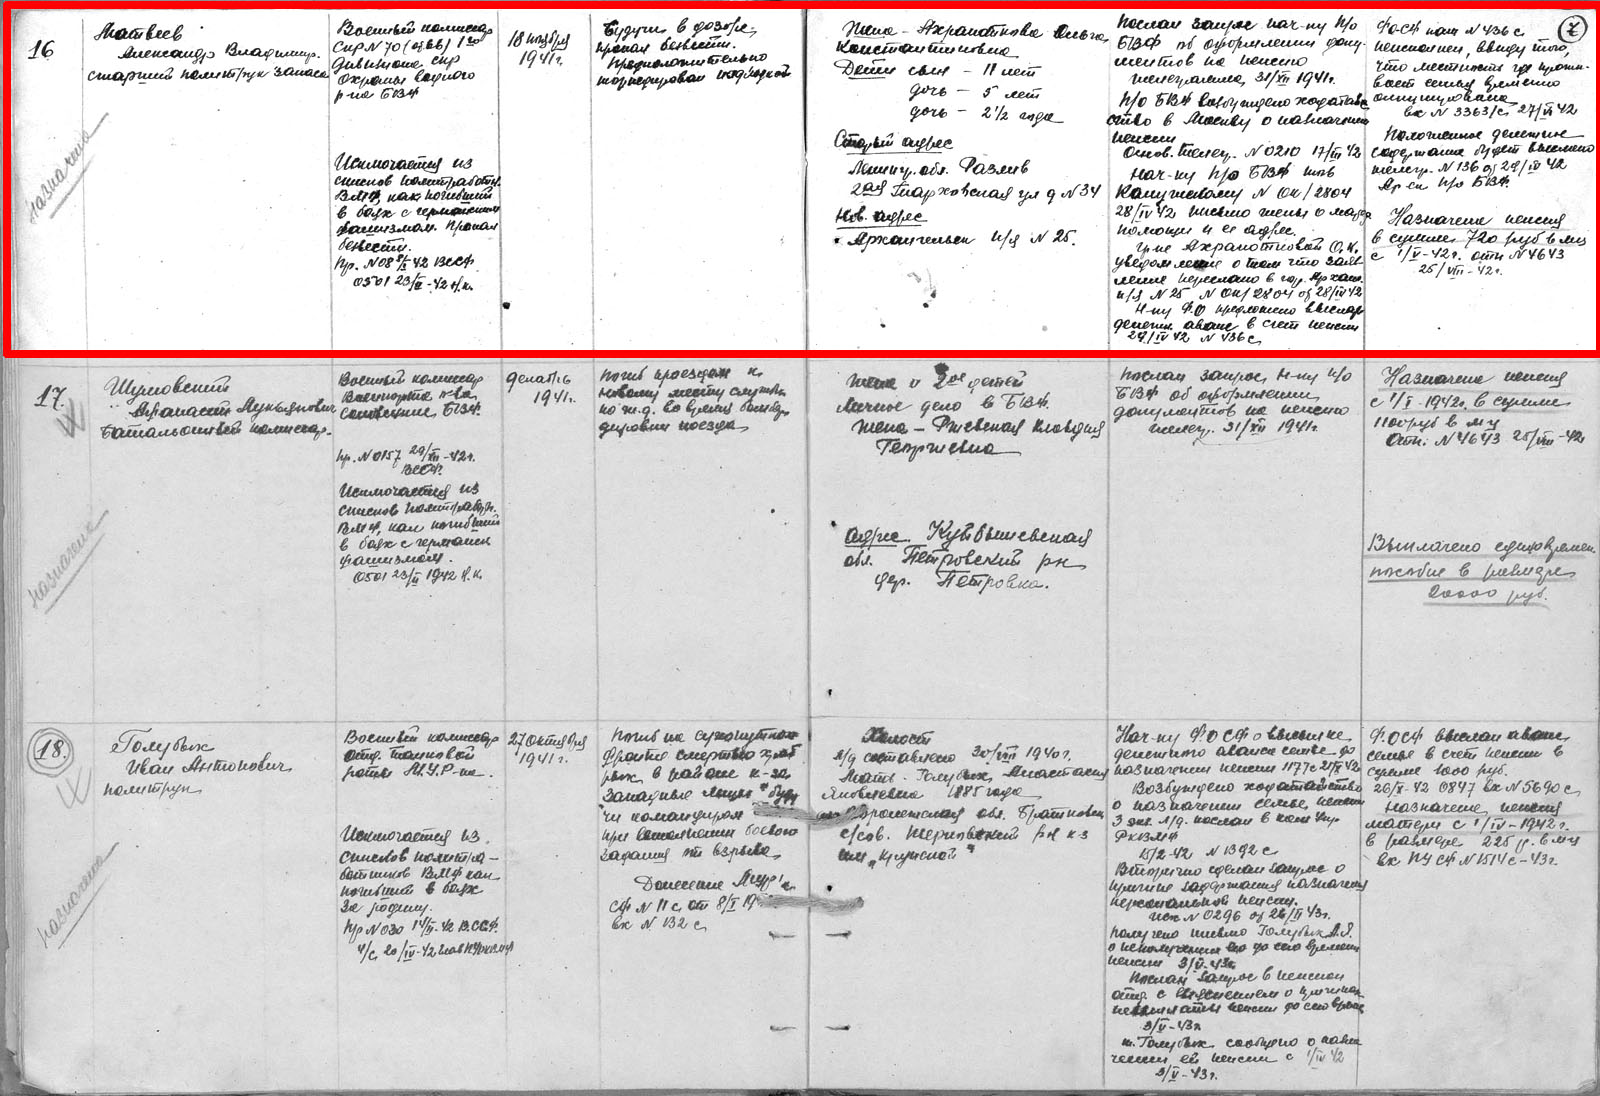 7
16
Матвеев
Александр Владимир.
старший политрук запаса
Назначена
Военный комиссар
СКР N 70 1го
дивизиона СКР
охраны водного
р-на БВФ
Исключается из
списков политработн.
ВМФ, как погибший
в боях с германским
фашизмом. Пропал
безвести.
Пр. N 08 42 ВССФ
0501 23/II-42 н.к.
18 ноября
1941г.
Будучи в дозоре,
пропал безвести.
Предположительно
торпедирован подлодкой
Жена - Ахрапоткова Ольга
Константиновна
Дети сын - 11 лет
дочь - 5 лет
дочь - 2 1/2 года
Старый адрес
Ленингр. обл. Разлив
2ая Тарховская ул д N 34
Нов. адрес
Архангельск п/я N 25.
Послан запрос нач-ку п/о
БВФ об оформлении доку-
ментов на пенсию
телеграмма, 31/XII 1941г.
П/о БВФ возбуждено ходатай-
ство в Москву о назначении
пенсии
Основ. телегр. N 0210 17/III 42
Нач-ку п/о БВФ
N ОК/2804
28/IV 42 письмо жены о
помощи и ее адрес.
Гр-не Ахрапотковой О.К.
уведомление о том что заяв-
ление переслано в гор. Архан.
п/я N 25 N ОК/2804 от 28/IV 42
Н-ку Ф.О предложено выслать
денежн. аванс в счет пенсии
29/IV 42 N 436 с
ФОСФ наш N 436 с
ввиду того,
что местность где прожи-
вает семья временно
оккупирована
вх N 3363/с 27/ 42
Положенное денежное
содержание будет выслано
телегр. N 136 от 29/IV 42
П/о БВФ.
Назначена пенсия
в сумме 720 руб в м-ц
с 1/V-42г. отн N 4643
25/VIII-42г.
17.
Шумовский
Афанасий Лукьянович
Батальонный комиссар.
Назначена
Военный комиссар
Военпорта
БВФ.
Пр. N 0157 42г.
ВССФ.
Исключается из
списков политработн.
ВМФ, как погибший
в боях с германск
фашизмом.
0501 23/II 1942 н.к.
декабрь
1941г.
Погиб проездом к
новому месту службы
по ж.д. во время бомбар-
дировки поезда
Жена и 2ое детей
Личное дело в БВФ.
Жена - Ржевская Клавдия
Георгиевна
адрес Куйбышевская
обл. Петровский р-н
дер. Петровка.
Послан запрос Н-ку п/о
БВФ об оформлении
документов на пенсию
телегр. 31/XII 1941г.
Назначена пенсия
с 1/I-1942г. в сумме
1100 руб в м-ц
Отн. N 4643 25/VIII-42
Выплачено единовремен.
пособие в размере
20000 руб.
18.
Голубых
Иван Антонович
политрук
Назначена
Военный комиссар
отд. танковой
роты М.У.Р-на.
Исключается из
списков политра-
ботников ВМФ как
погибший в боях
за родину.
Пр N 030 14/II-42 ВССФ.
27 октября
1941г.
Погиб на сухопутном
фронте смертью храб-
рых в районе к-за
"Западные Лицы" буду-
чи командиром
при выполнении боевого
задания от взрыва
Донесение
СФ N 11 с от 8/I 19
вх N 132 с
Холост
л/д составлено 30/VIII 1940г.
Мать - Голубых, Анастасия
Яковлевна 1885 года
Воронежская обл. Братковск.
с/сов. Терновский р-н к-з
им "Крупской"
Нач-ку ФОСФ о высылке
денежного аванса семье до
назначения пенсии 1177с 42
Возбуждено ходатайство
о назначении семье, пенсии
3 экз л/д. послан в
РК ВМФ
15/2-42 N 1392 с
Вторично сделан запрос о
причине задержания назначения
персональной пенсии.
исх N 0296 от 26/II 43г.
получено письмо Голубых А.Я.
о неполучении его до сего времени
пенсии 3/V-43г.
Послан запрос в пенсион
отд. с выяснением о причинах
невыплаты пенсии до сего время
3/V-43г.
т. Голубых сообщено о назна-
чении ей пенсии с 1/IV 42
3/V-43г.
ФОСФ выслан аванс
семье в счет пенсии в
сумме 1000 руб.
26/X-42 0847 вх N 5690 с
Назначена пенсия
матери с 1/IV-1942г.
в размере 225 р. в м-ц
вх ПУСФ N 1514 с-43г.